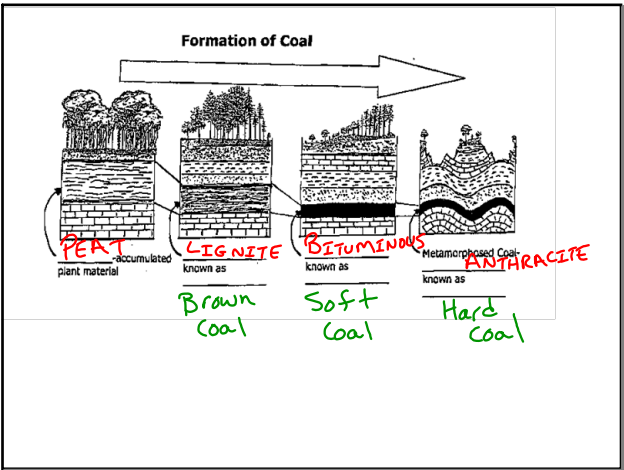 Formation of Coal
PEAT
-accumulated
plant material
LIGNITE
known as
Brown
Coal
BITUMINOUS
known as
Soft
Coal
Metamorphosed Coal-
ANTHRACITE
known as
Hard
Coal